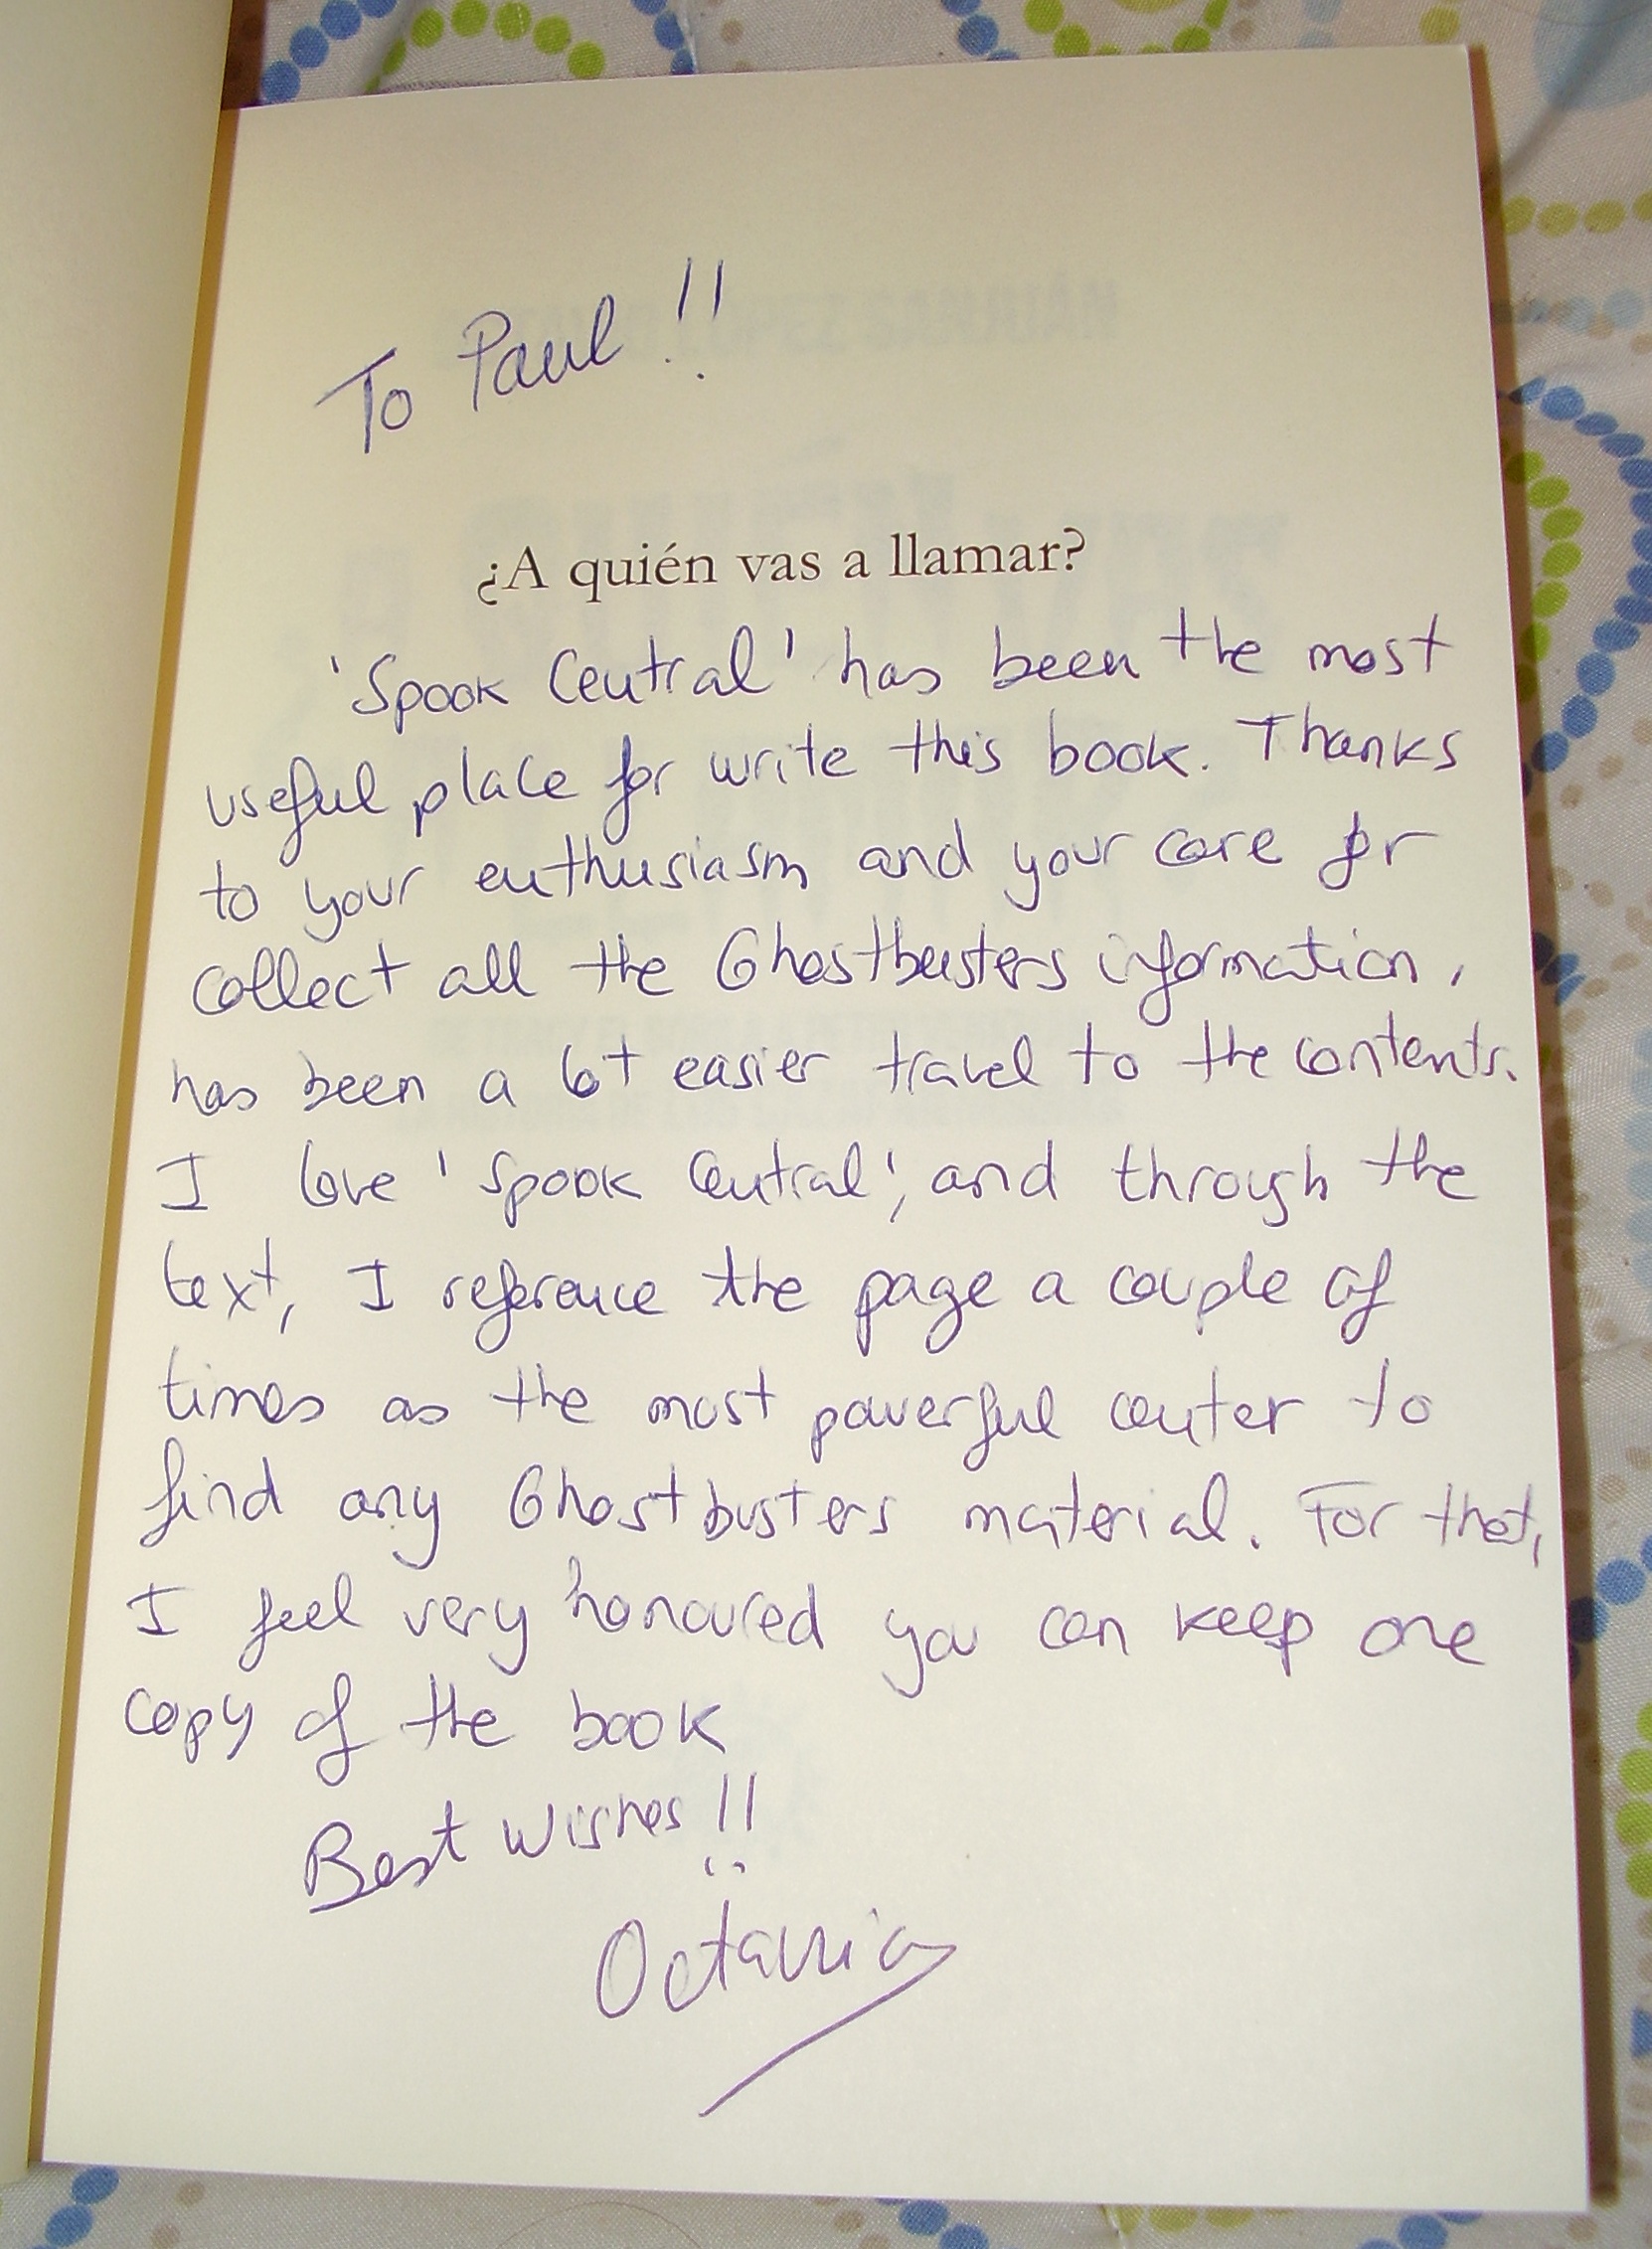 To Paul!!
¿A quién vas a llamar?
'Spook Central' has been the most
useful place for write this book. Thanks
to your enthusiasm and your care for
collect all the Ghostbusters information,
has been a lot easier travel to the contents.
I love 'Spook Central', and through the
text, I reference the page a couple of
times as the most powerful center to
find any Ghostbusters material. For that,
I feel very honoured you can keep one
copy of the book
Best Wishes!!